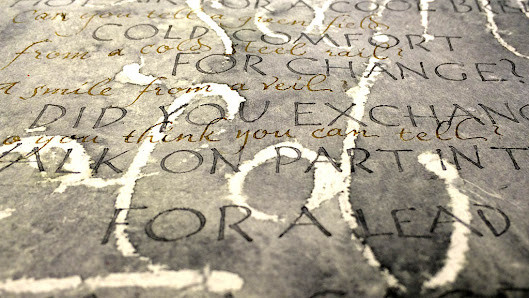 HOT AIR FOR A COOL BREE
Can you tell a green field
COLD COMFORT
from a cold steel rail?
FOR CHANGE?
A smile from a veil?
DID YOU EXCHAN
o you think you can tell?
ALK ON PART INT
FOR A LEAD